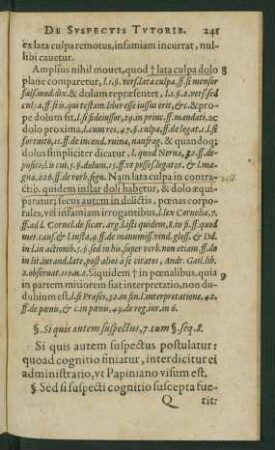 DE SVSPECTIS TVTORIB. 241
ex lata culpa remotus, infamiam incurrat, nul-
libi cauetur.
Amplius nihil mouet, quod † lata culpa dolo 8
plane comparetur, l. 1. §. vers. lata culpa. ff. si mensor
fals. mod. dix. & dolum repræsentet, l. 1. §. 2. vers. sed
culpa. ff. si is, qui testam. liber esse iussus erit, &c. & pro-
pe dolum sit. l. si fideiussor, 29. in print. ff. mandati. ac
dolo proxima, l. cum res, 47. §. culpa. ff. de legat. 1. l. si
fortuito, 11. ff. de incend. ruina, naufrag. & quandoq́
dolus simpliciter dicatur, l. quod Nerua, 32. ff. de-
positi; l. si cui, 5. §. dolum, 15. ff. vt posses. legator. & l. ma-
gna, 226. ff. de verb. sign. Nam lata culpa in contra-
ctib. quidem instar doli habetur, & dolo æqui-
paratur; secus autem in delictis, pœnas corpo-
rales, vel infamiam irrogantibus, l. lex Cornelia, 7.
ff. ad l. Cornel. de sicar. arg. l. isti quidem, 8. in fi. ff. quod
met. caus. & l. iusta, 4. ff. de manumiss. vind. gloss. & Dd.
in l. in actionib. 5. §. sed in his. super verb. non etiam. ff. de
in lit. iurand. late, post alios a se citatos, Andr. Gail. lib.
2. obseruat. 110. n. 2. Siquidem † in pœnalibus, quia 9
in partem mitiorem fiat interpretatio, non du-
dubium est. l. si Præses, 32. in fin. l. interpretatione, 42.
ff. de pœnis, & c. in pœnis, 49. de reg. iur. in 6.
§. Si quis autem suspectus, 7. cum §. seq. 8.
Si quis autem suspectus postulatur:
quoad cognitio finiatur, interdicitur ei
administratio, vt Papiniano visum est.
§. Sed si suspecti cognitio suscepta fue-
Q rit: